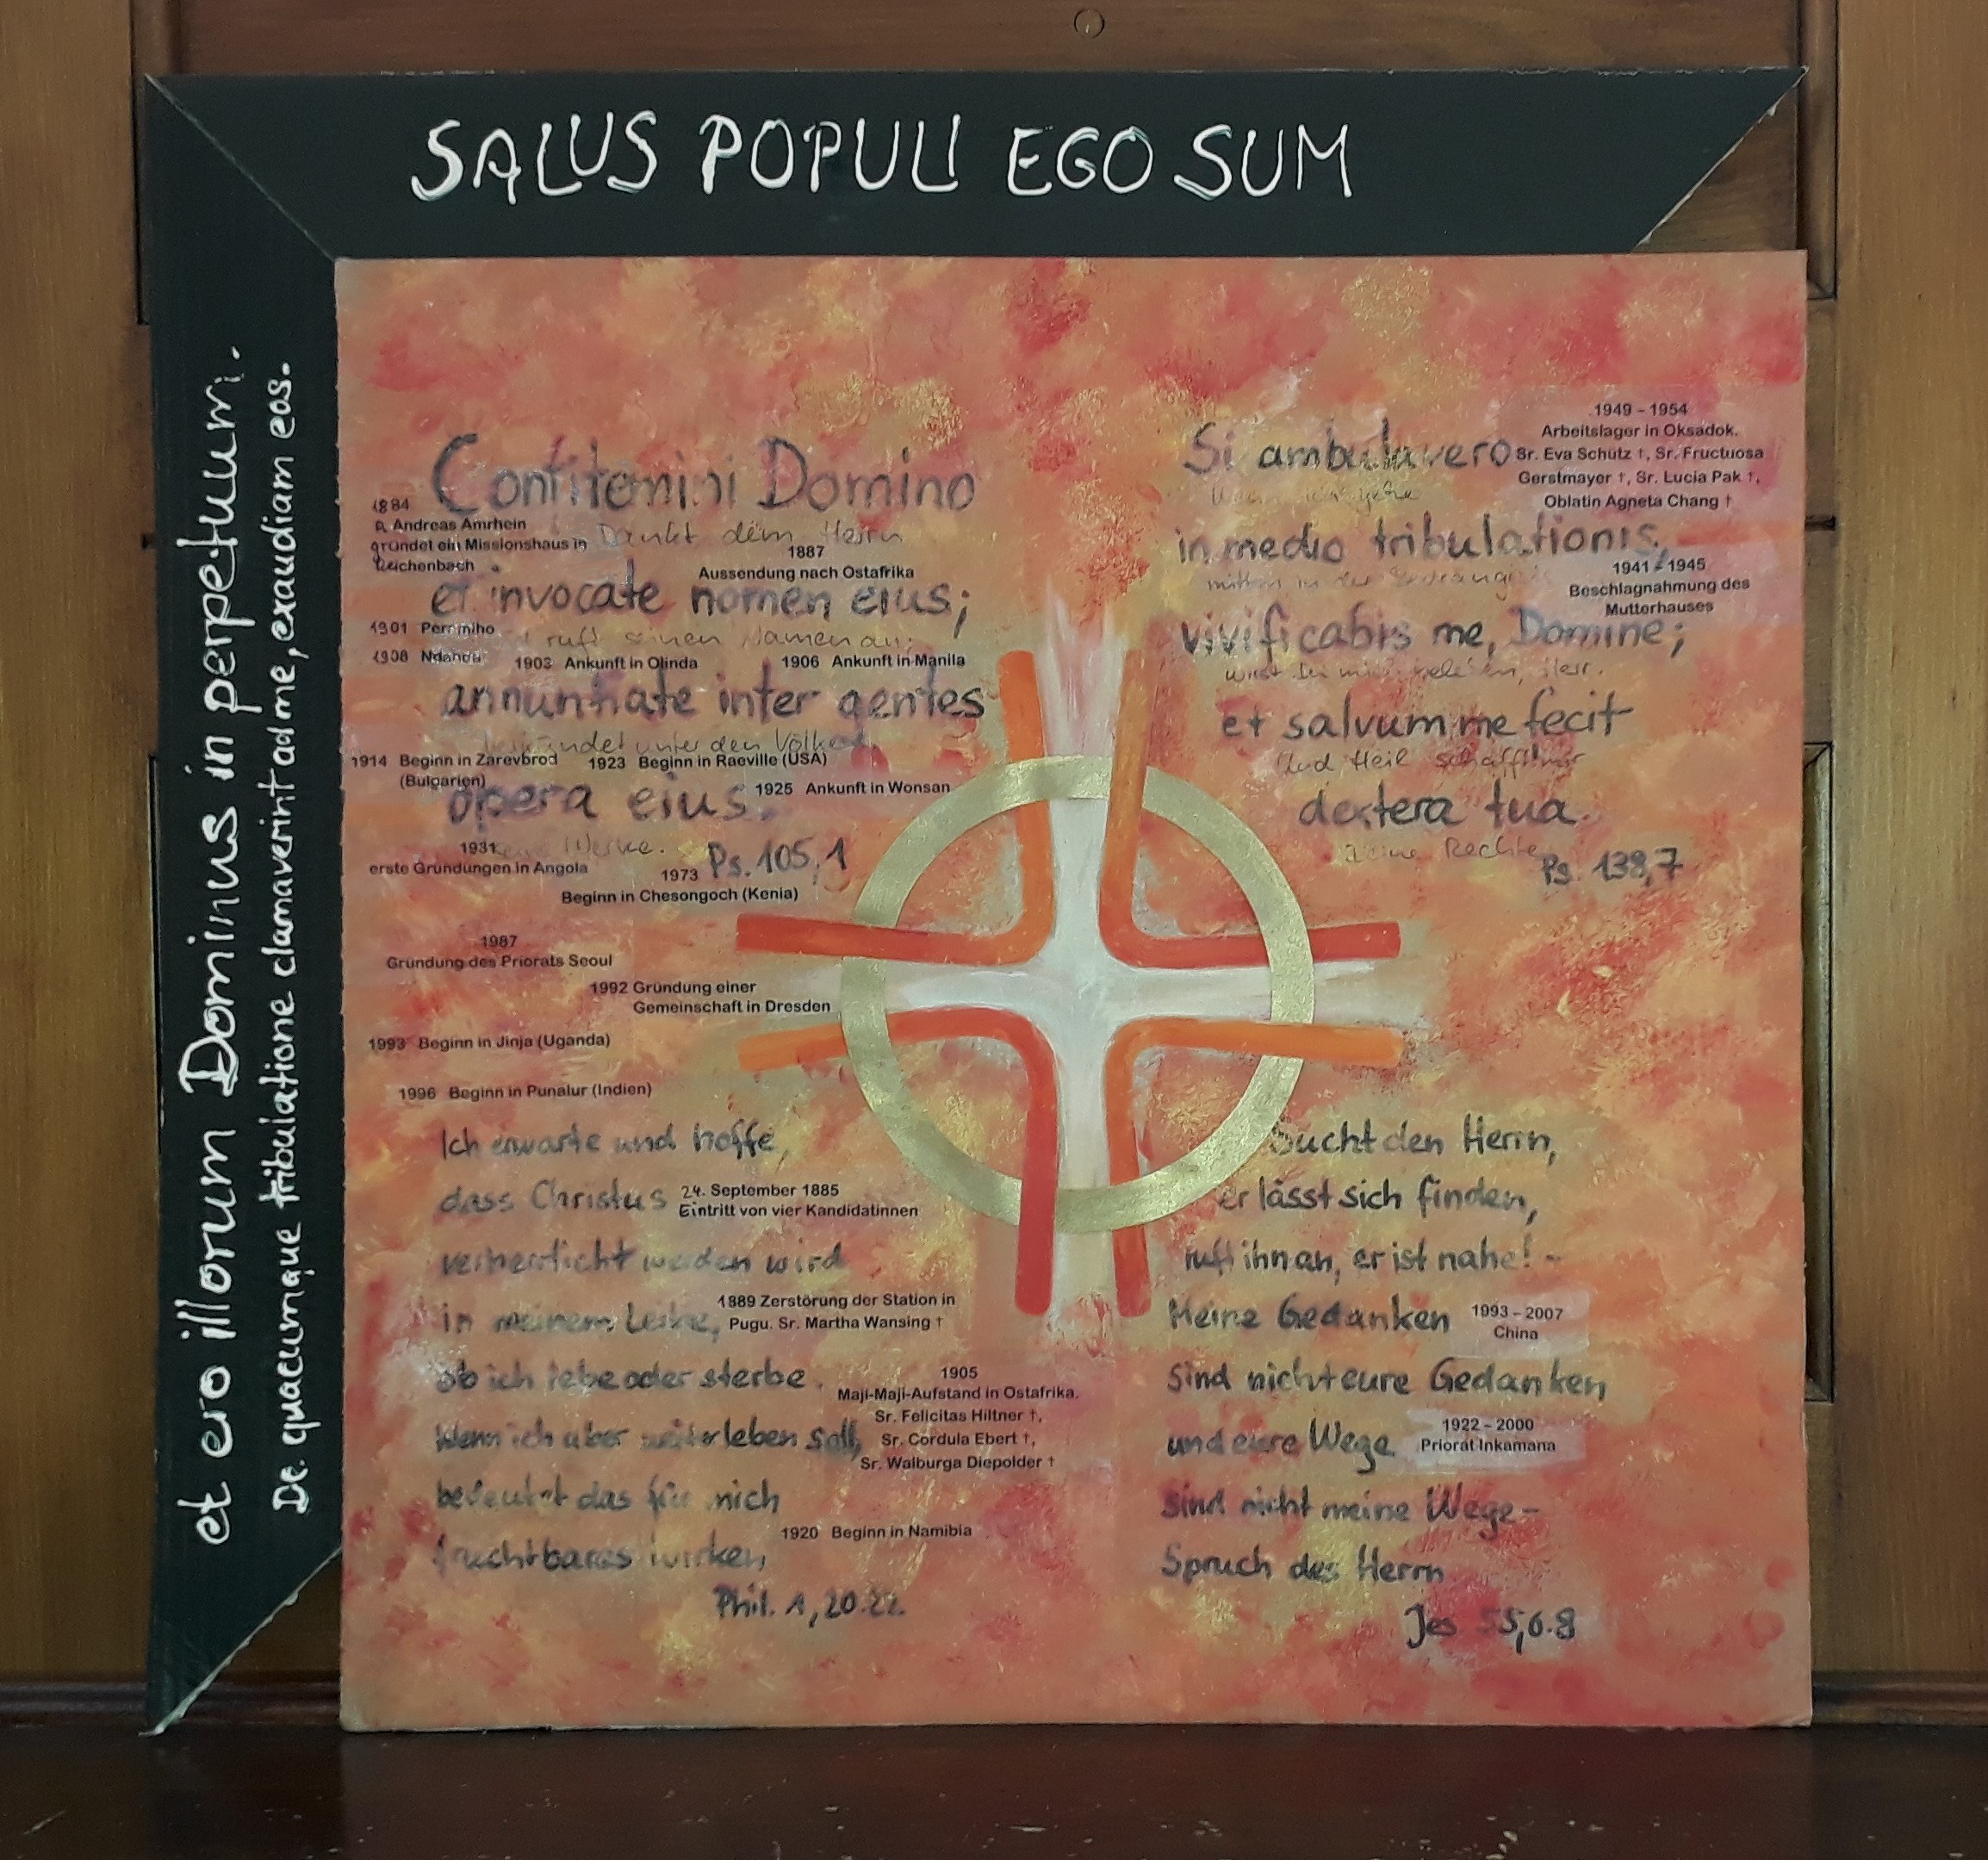 SALUS POPULI EGO SUM
et ero illorum Dominus in perpetuum.
De quacumque tribulatione clamaverint ad me, exaudiam eos.
Confitemini Domino
1884
P. Andreas Amrhein
gründet ein Missionshaus in
Reichenbach
Dankt dem Herrn
1887
Aussendung nach Ostafrika
et invocate nomen eius;
1901 Peramiho
ruft seinen Namen an;
1908 Ndanda
1903 Ankunft in Olinda
1906 Ankunft in Manila
annuntiate inter gentes
unter den Völkern
1914 Beginn in Zarevbrod
(Bulgarien)
1923 Beginn in Raeville (USA)
opera eius.
1925 Ankunft in Wonsan
1931
erste Gründungen in Angola
Werke.
Ps. 105,1
1973
Beginn in Chesongoch (Kenia)
1987
Gründung des Priorats Seoul
1992 Gründung einer
Gemeinschaft in Dresden
1993 Beginn in Jinja (Uganda)
1996 Beginn in Punalur (Indien)
Si ambulavero
1949 - 1954
Arbeitslager in Oksadok.
Sr. Eva Schütz †, Sr. Fructuosa
Gerstmayer †, Sr. Lucia Pak †,
Oblatin Agneta Chang †
in medio tribulationis,
mitten in der
1941 - 1945
Beschlagnahmung des
Mutterhauses
vivificabis me, Domine;
wirst Du mich beleben, Herr.
et salvum me fecit
Und Heil schafft mir
dextera tua.
Deine Rechte
Ps. 138,7
Ich erwarte und hoffe,
dass Christus
24. September 1885
Eintritt von vier Kandidatinnen
verherrlicht werden wird
in meinem Leibe,
1889 Zerstörung der Station in
Pugu. Sr. Martha Wansing †
ob ich lebe oder sterbe.
1905
Maji-Maji-Aufstand in Ostafrika.
Sr. Felicitas Hiltner †,
Sr. Cordula Ebert †,
Sr. Walburga Diepolder †
Wenn ich aber weiterleben soll,
bedeutet das für mich
1920 Beginn in Namibia
fruchtbares wirken
Phil. 1,20.22
Sucht den Herrn,
er lässt sich finden,
ruft ihn an, er ist nahe! -
Meine Gedanken
1993 - 2007
China
sind nicht eure Gedanken
und eure Wege
1922 - 2000
Priorat Inkamana
sind nicht meine Wege -
Spruch des Herrn
Jes 55,6.8